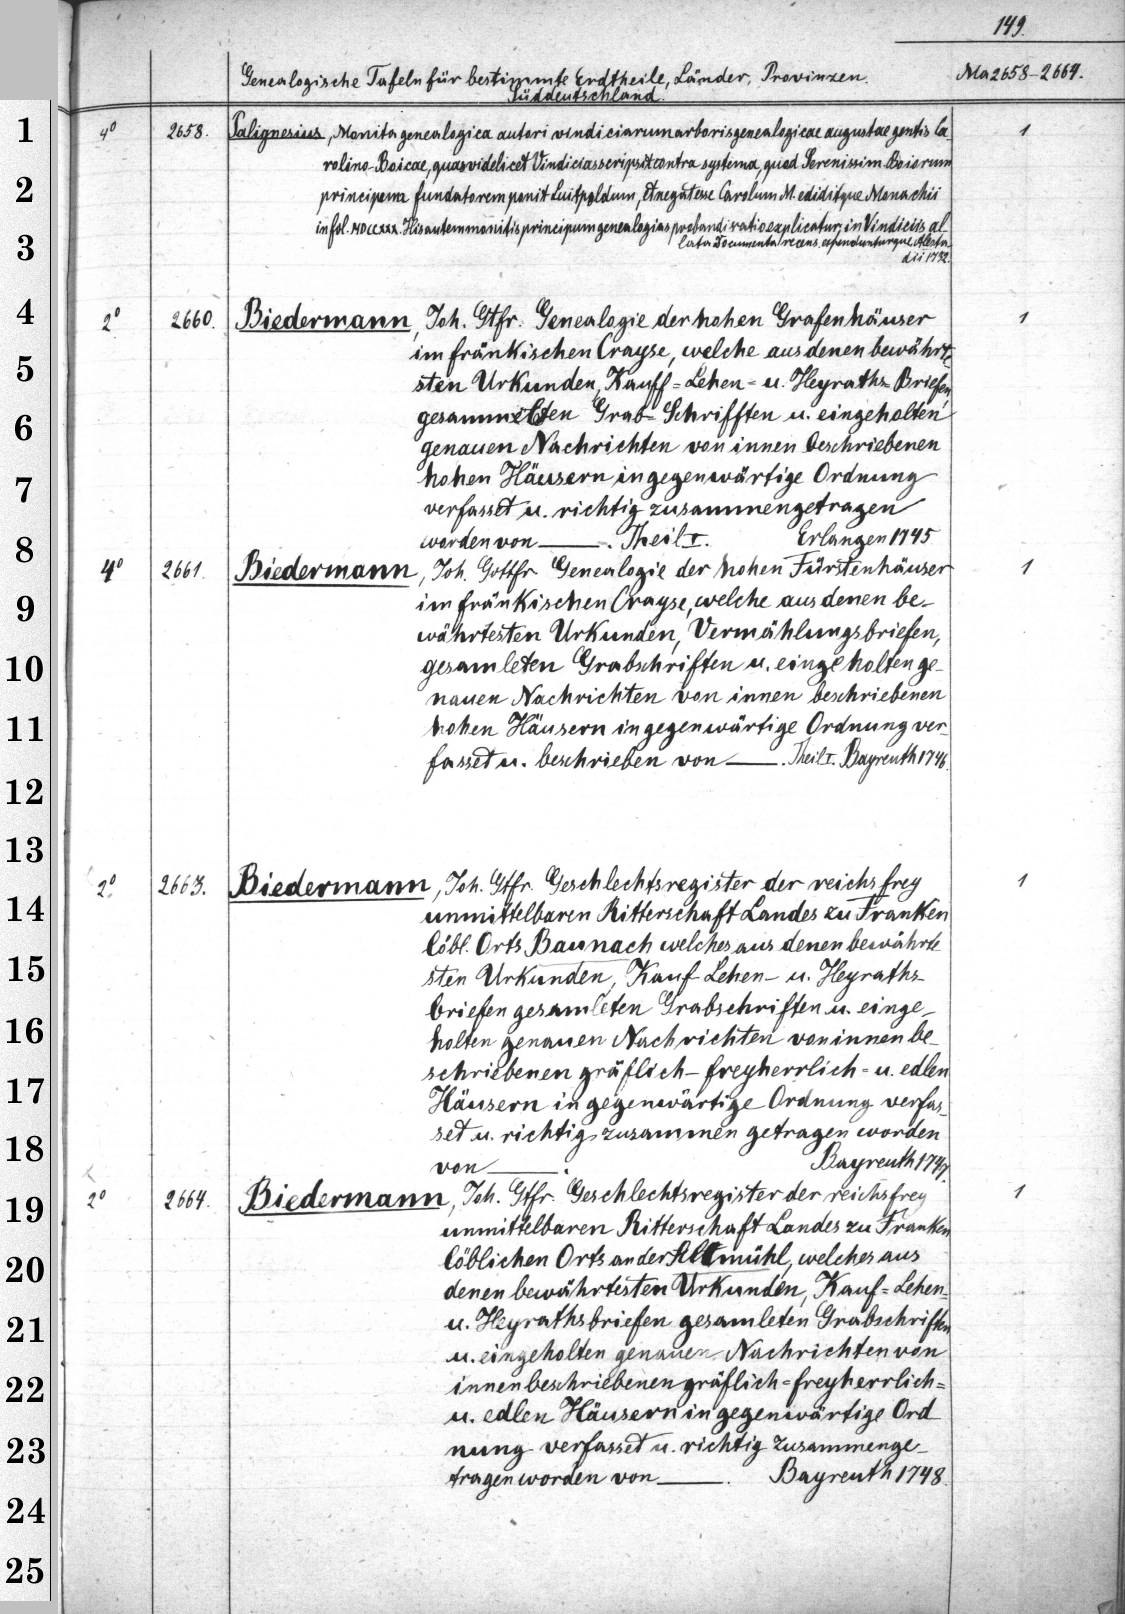 149.
Genealogische Tafeln für bestimmte Erdtheile, Länder, Provinzen. Ma 2658-2664.
Süddeutschland.
1
2
3
4
5
6
7
8
9
10
11
12
13
14
15
16
17
18
19
20
21
22
23
24
25
4° 2658. Palignesius, Monita genealogica autori vindiciarum arboris genealogicae augustae gentis Ca 1
rolino-Boicae, quas videlicet Vindicias scripsit contra systema, quod Serenissim. Boiorum
principem fundatorem ponit Luitpoldum, et negat esse Carolum M. ediditque Monachii
in fol. MDCCXXX. His autem monitis principum genealogias probandi ratio explicatur, in Vindiciis al
lata Documenta recens. expenduntur que
dii 1732.
2° 2660. Biedermann, Joh. Gtfr. Genealogie der hohen Grafenhäuser 1
im fränkischen Crayse, welche aus denen bewährte
sten Urkunden, Kauff= Lehen= u. Heyraths= Briefen,
gesammelten Grab= Schrifften u. eingeholten
genauen Nachrichten von innen beschriebenen
hohen Häusern in gegenwärtige Ordnung
verfasset u. richtig zusammengetragen
worden von ——. Theil I. Erlangen 1745
4° 2661. Biedermann, Joh. Gottfr. Genealogie der hohen Fürstenhäuser 1
im fränkischen Crayse, welche aus denen be-
währtesten Urkunden, Vermählungsbriefen,
gesamleten Grabschriften u. eingeholten ge-
nauen Nachrichten von innen beschriebenen
hohen Häusern in gegenwärtige Ordnung ver-
fasset u. beschrieben von ——. Theil I. Bayreuth 1746.
2° 2663. Biedermann, Joh. Gtfr. Geschlechtsregister der reichs frey 1
unmittelbaren Ritterschaft Landes zu Franken
löbl. Orts Baunach welches aus denen bewährte
sten Urkunden, Kauf Lehen- u. Heyraths-
briefen gesamleten Grabschriften u. einge-
holten genauen Nachrichten von innen be-
schriebenen gräflich- freyherrlich= u. edlen
Häusern in gegenwärtige Ordnung verfas-
set u. richtig zusammen getragen worden
von ——. Bayreuth 1747.
2° 2664. Biedermann, Joh. Gtfr. Geschlechtsregister der reichsfrey 1
unmittelbaren Ritterschaft Landes zu Franken
löblichen Orts an der Altmühl, welches aus
denen bewährtesten Urkunden, Kauf= Lehen=
u. Heyrathsbriefen gesamleten Grabschriften
u. eingeholten genauen Nachrichten von
innen beschriebenen gräflich= freyherrlich=
u. edlen Häusern in gegenwärtige Ord
nung verfasset u. richtig zusammenge-
tragen worden von ——. Bayreuth 1748.